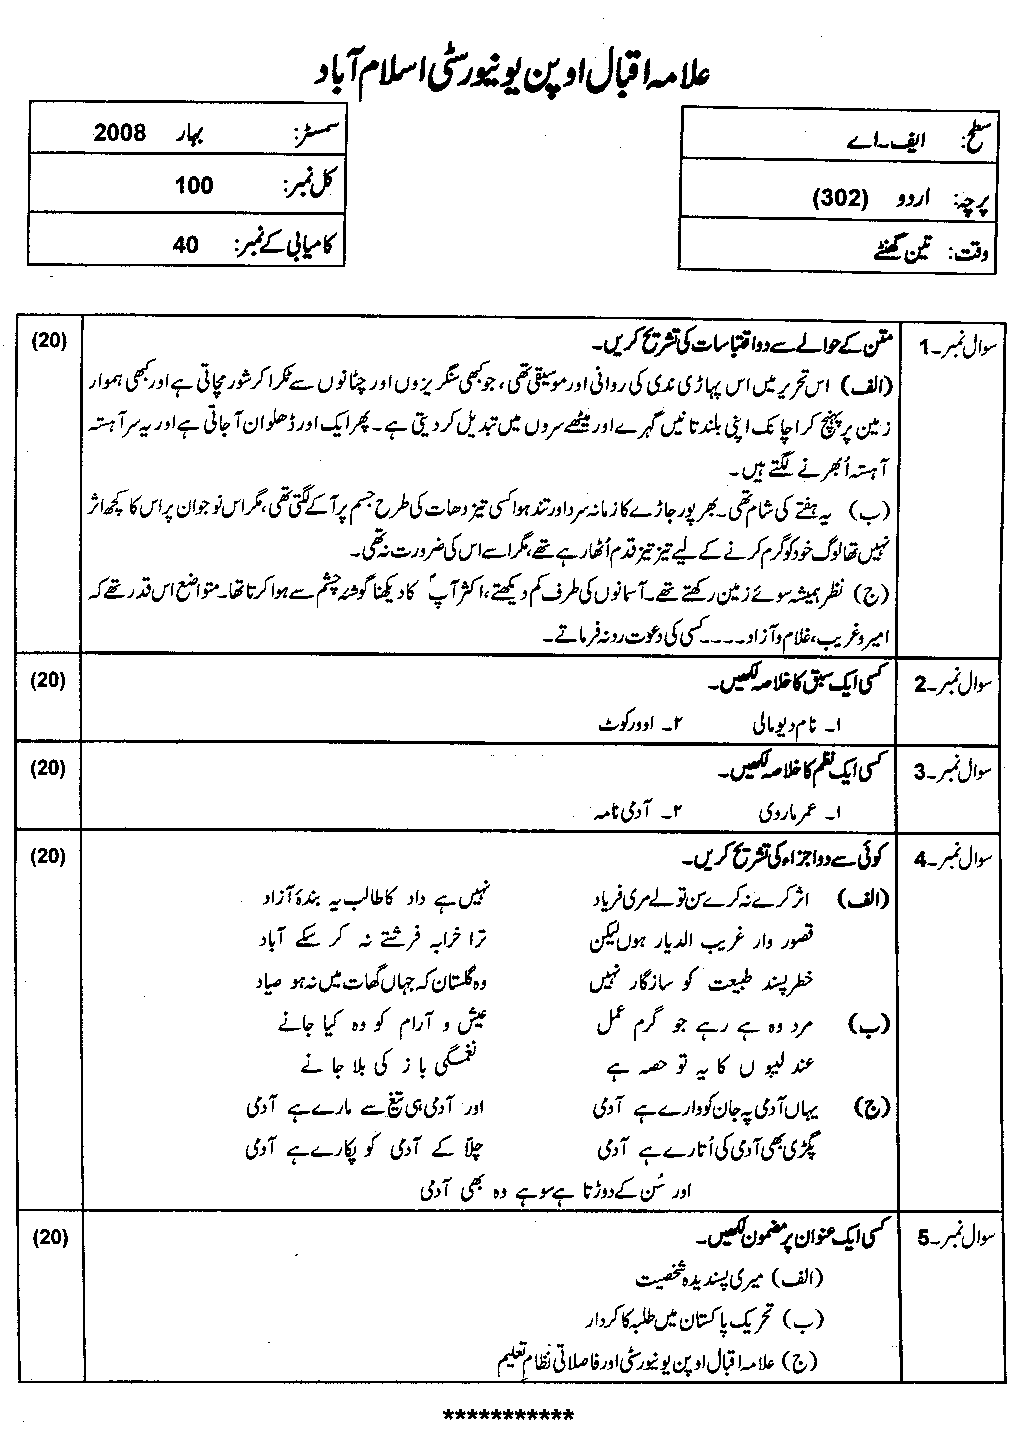 علامہ اقبال اوپن یونیورسٹی اسلام آباد
سطح: ایف۔اے
پرچہ: اردو (302)
وقت: تین گھنٹے
سمسٹر: بہار 2008
کل نمبر: 100
کامیابی کے نمبر: 40
سوال نمبر۔1 متن کے حوالے سے دو اقتباسات کی تشریح کریں۔ (20)
(الف) اس تحریر میں اس پہاڑی ندی کی روانی اور موسیقی تھی، جو کبھی سنگریزوں اور چٹانوں سے ٹکرا کر شور مچاتی ہے اور کبھی ہموار
زمین پر پہنچ کر اچانک اپنی بلند تانیں گہرے اور میٹھے سروں میں تبدیل کر دیتی ہے۔ پھر ایک اور ڈھلوان آجاتی ہے اور یہ سر آہستہ
آہستہ اُبھرنے لگتے ہیں۔
(ب) یہ ہفتے کی شام تھی۔ بھرپور جاڑے کا زمانہ سرد اور تند ہوا کسی تیز دھات کی طرح جسم پر آ کے لگتی تھی، مگر اس نوجوان پر اس کا کچھ اثر
نہیں تھا لوگ خود کو گرم کرنے کے لیے تیز تیز قدم اُٹھا رہے تھے، مگر اسے اس کی ضرورت نہ تھی۔
(ج) نظر ہمیشہ سوئے زمین رکھتے تھے۔ آسانوں کی طرف کم دیکھتے، اکثر آپؐ کا دیکھنا گوشۂ چشم سے ہوا کرتا تھا۔ متواضع اس قدر تھے کہ
امیر و غریب، غلام و آزاد۔۔۔۔ کسی کی دعوت رد نہ فرماتے۔
سوال نمبر۔2 کسی ایک سبق کا خلاصہ لکھیں۔ (20)
۱۔ نام دیو مالی ۲۔ اوورکوٹ
سوال نمبر۔3 کسی ایک نظم کا خلاصہ لکھیں۔ (20)
۱۔ عمر ماروی ۲۔ آدمی نامہ
سوال نمبر۔4 کوئی سے دو اجزاء کی تشریح کریں۔ (20)
(الف) اثر کرے نہ کرے سن تو لے مری فریاد نہیں ہے داد کا طالب یہ بندۂ آزاد
قصور وار غریب الدیار ہوں لیکن ترا خرابہ فرشتے نہ کر سکے آباد
خطر پسند طبیعت کو سازگار نہیں وہ گلستان کہ جہاں گھات میں نہ ہو صیاد
(ب) مرد وہ ہے رہے جو گرم عمل عیش و آرام کو وہ کیا جانے
عندلیبوں کا یہ تو حصہ ہے نغمگی باز کی بلا جانے
(ج) یہاں آدمی پہ جان کو وارے ہے آدمی اور آدمی ہی تیغ سے مارے ہے آدمی
پگڑی بھی آدمی کی اُتارے ہے آدمی چلّا کے آدمی کو پکارے ہے آدمی
اور سُن کے دوڑتا ہے سو ہے وہ بھی آدمی
سوال نمبر۔5 کسی ایک عنوان پر مضمون لکھیں۔ (20)
(الف) میری پسندیدہ شخصیت
(ب) تحریک پاکستان میں طلبہ کا کردار
(ج) علامہ اقبال اوپن یونیورسٹی اور فاصلاتی نظامِ تعلیم
***********